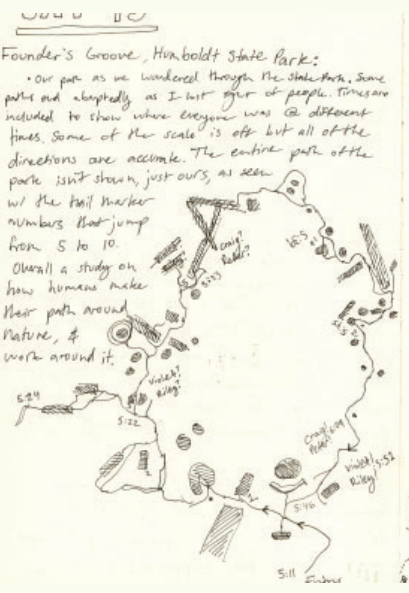 Founder's Groove, Humboldt State Park:
• Our path as we wandered through the State Park. Some
paths end abruptedly as I lost sight of people. Times are
included to show where everyone was @ different
times. Some of the scale is off but all of the
directions are accurate. The entire path of the
park isn't shown, just ours, as seen
w/ the trail marker
numbers that jump
from 5 to 10.
Overall a study on
how humans make
their path around
nature, &
work around it.
Craig?
5:33
Violet?
Riley?
5:24
5:22
2
Craig?
6:09
Violet!
Riley!
5:52
5:46
5:11